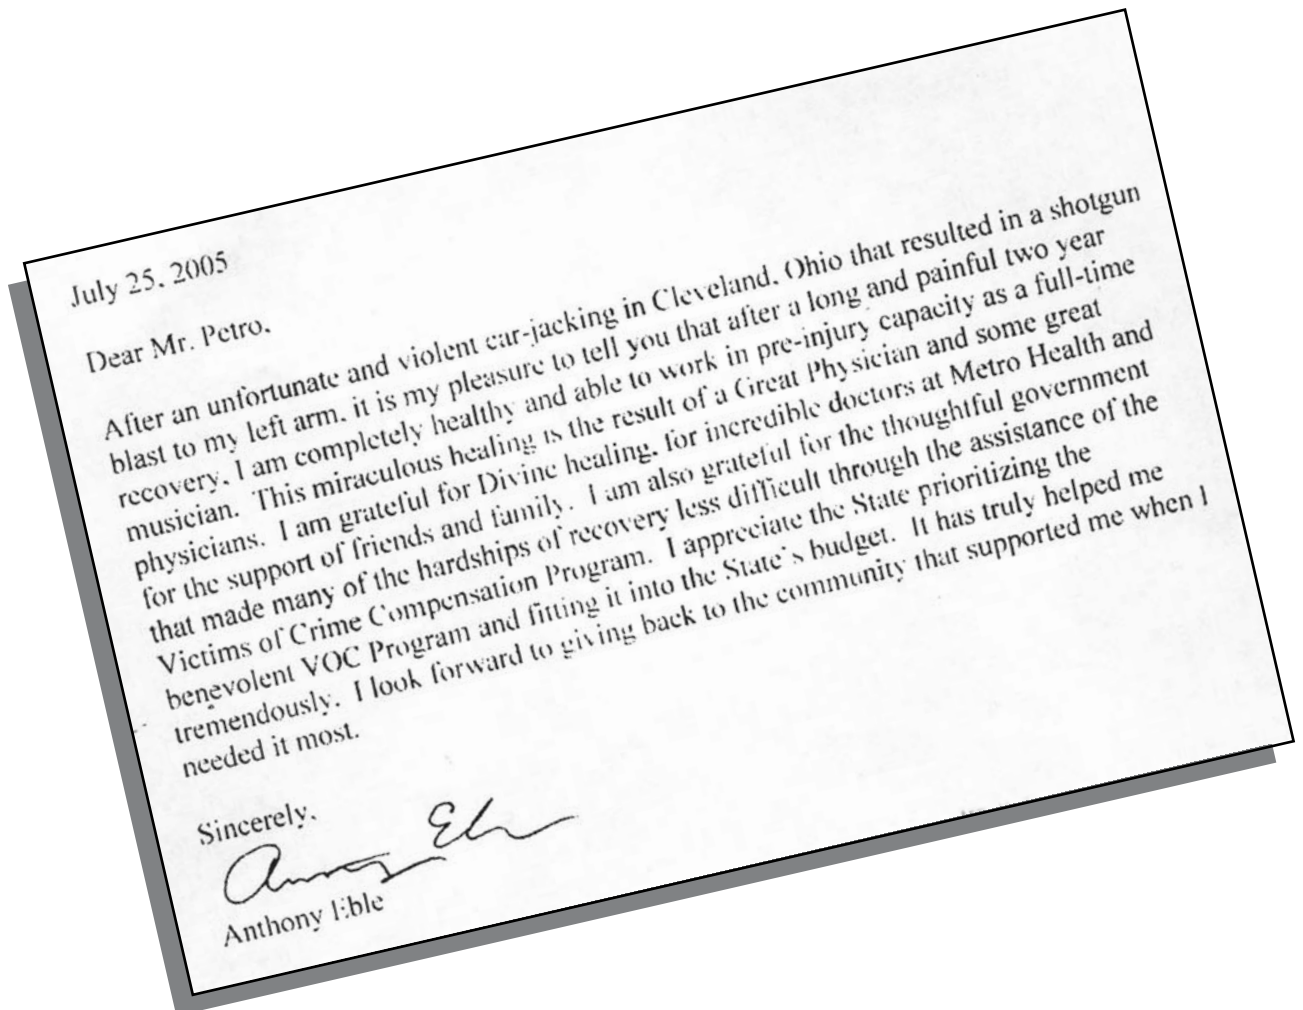 July 25, 2005
Dear Mr. Petro,
After an unfortunate and violent car-jacking in Cleveland, Ohio that resulted in a shotgun
blast to my left arm, it is my pleasure to tell you that after a long and painful two year
recovery, I am completely healthy and able to work in pre-injury capacity as a full-time
musician.  This miraculous healing is the result of a Great Physician and some great
physicians.  I am grateful for Divine healing, for incredible doctors at Metro Health and
for the support of friends and family.  I am also grateful for the thoughtful government
that made many of the hardships of recovery less difficult through the assistance of the
Victims of Crime Compensation Program.  I appreciate the State prioritizing the
benevolent VOC Program and fitting it into the State's budget.  It has truly helped me
tremendously.  I look forward to giving back to the community that supported me when I
needed it most.
Sincerely,
Anthony Eble
Anthony Eble